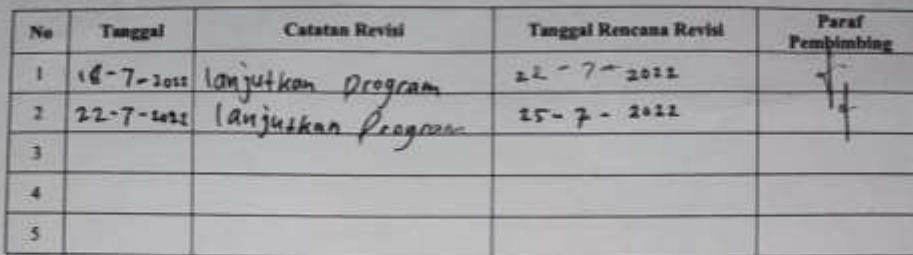 No Tanggal Catatan Revisi Tanggal Rencana Revisi Paraf Pembimbing
1 18-7-2022 lanjutkan Program 22-7-2022
2 22-7-2022 lanjutkan Program 25-7-2022
3
4
5